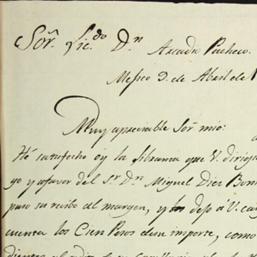 Sor. Lic.do Dn Arcadio Pacheco.
Messico 9. de Abril de
Muy apreciable Sor mio:
He satisfecho oy la libranza que V. dirijio
yo y afavor del Sr. Dn Miguel Diez Bon
puso su recibo al margen, y los dejo á V. car
cuenta los Cien Pesos de su importe, como